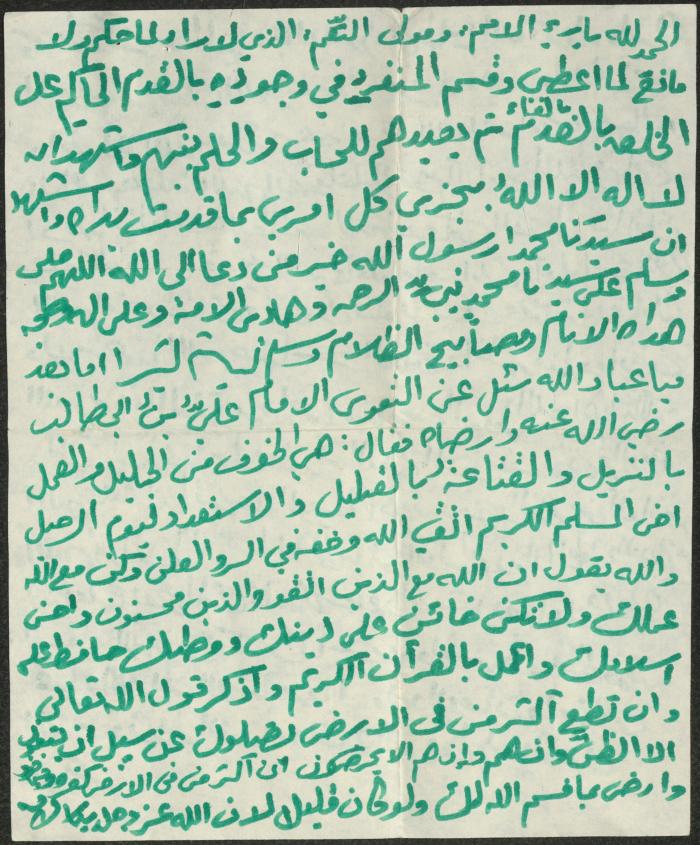 الحمد لله بارىء الامم، ومولى النعم، الذي لا راد لما حكم ولا
مانع لما اعطى وقسم المنفرد في وجوده بالقدم الحاكم على
الخلق بالعدم بالفناء ثم يعيدهم للحساب والحكم بينهم واشهد ان
لا اله الا الله يجزي كل امرىء بما قدمت يداه واشهد
ان سيدنا محمدا رسول الله خير من دعا الى الله اللهم صلي
وسلم على سيدنا محمد نبي الرحمه وهادي الامة وعلى اله وصحبه
هداه الانام ومصابيح الظلام وسلم كثيرا اما بعد
فيا عباد الله سئل عن التقوى الامام علي بن ابي طالب
رضي الله عنه وارضاه فقال: هي الخوف من الجليل والعمل
بالتنزيل والقناعة بالقليل والاستعداد ليوم الرحيل
اخي المسلم الكريم اتقي الله وخفه في السر والعلن وكن مع الله
والله يقول ان الله مع الذين اتقو والذين هم محسنون واحسن
عملك ولا تكن خائن على دينك ووطنك حافظ على
اسلامك واعمل بالقرآن الكريم واذكر قول الله تعالى
وان تطع اكثر من في الارض يضلوك عن سبيل ان يتبعون
الا الظن وانهم وان هم الا يخرصون ان اكثر من في الارض
وارضى بما قسم الله لك ولو كان قليل لان الله عز وجل